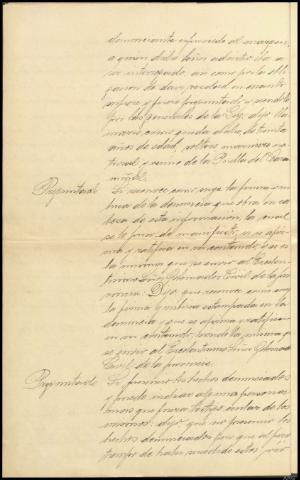 denunciante expresado al margen,
a quien dicho Señor advirtió iba a
ser interrogado, así como por la obli
gacion de decir verdad en cuanto
supiere y fuere preguntado y
por las penalidades de la Ley, dijo lla
marse como queda dicho de treinta
años de edad, soltero, marinero na
tural y vecino de la Puebla del Cara
miñal.
Preguntado Si reconoce como suya la firma
de la denuncia que obra en ca
beza de esta informacion, la cual
se le puso de manifiesto, si se afir
ma y ratifica en su contenido y si es
la misma que se envió al Excelen
tísimo Señor Gobernador Civil de la pro
vincia: Dijo que reconoce como suya
la firma y rúbrica estampada en la
denuncia y que se afirma y ratifica
en su contenido siendo la misma que
se envió al Excelentísimo Señor Goberna
dor Civil de la provincia.
Preguntado Si presenció los hechos denunciados
y puede indicar alguna persona
mas que fuera testigo ocular de los
mismos, dijo que no presenció los
hechos denunciados pero que al poco
tiempo de haber sucedido estos